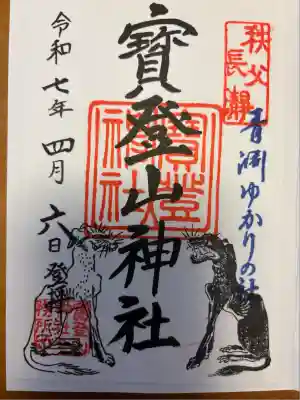 秩父
長瀞
青淵ゆかりの社
寶登山神社
寶登山
神社
令和七年四月六日登拝